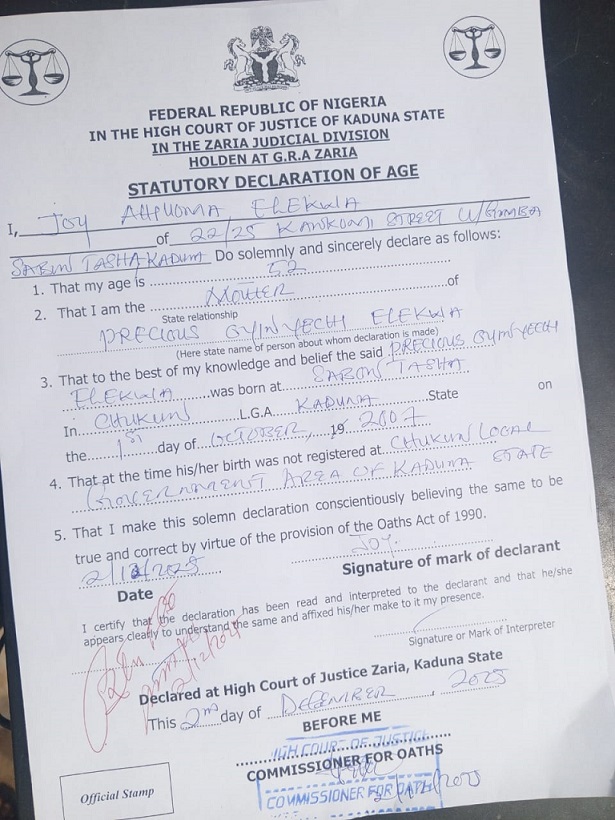 FEDERAL REPUBLIC OF NIGERIA
IN THE HIGH COURT OF JUSTICE OF KADUNA STATE
IN THE ZARIA JUDICIAL DIVISION
HOLDEN AT G.R.A ZARIA
STATUTORY DECLARATION OF AGE
I, Joy ELEKWA
of 22/25 STREET
SABON TASHA KADUNA Do solemnly and sincerely declare as follows:
1. That my age is 52
2. That I am the MOTHER of
State relationship
PRECIOUS ELEKWA
(Here state name of person about whom declaration is made)
3. That to the best of my knowledge and belief the said PRECIOUS
ELEKWA was born at SABON TASHA
In CHUKUN L.G.A. KADUNA State on
the 1st day of OCTOBER, 19 2007
4. That at the time his/her birth was not registered at CHUKUN LOCAL
GOVERNMENT AREA OF KADUNA STATE
5. That I make this solemn declaration conscientiously believing the same to be
true and correct by virtue of the provision of the Oaths Act of 1990.
2/12/2025 Joy.
Date Signature of mark of declarant
I certify that the declaration has been read and interpreted to the declarant and that he/she
appears clearly to understand the same and affixed his/her make to it my presence.
Signature or Mark of Interpreter
2/12/2025
Declared at High Court of Justice Zaria, Kaduna State
This 2nd day of DECEMBER, 2025
BEFORE ME
HIGH COURT OF JUSTICE
COMMISSIONER FOR OATHS
COMMISSIONER FOR OATH
2/12/2025
Official Stamp